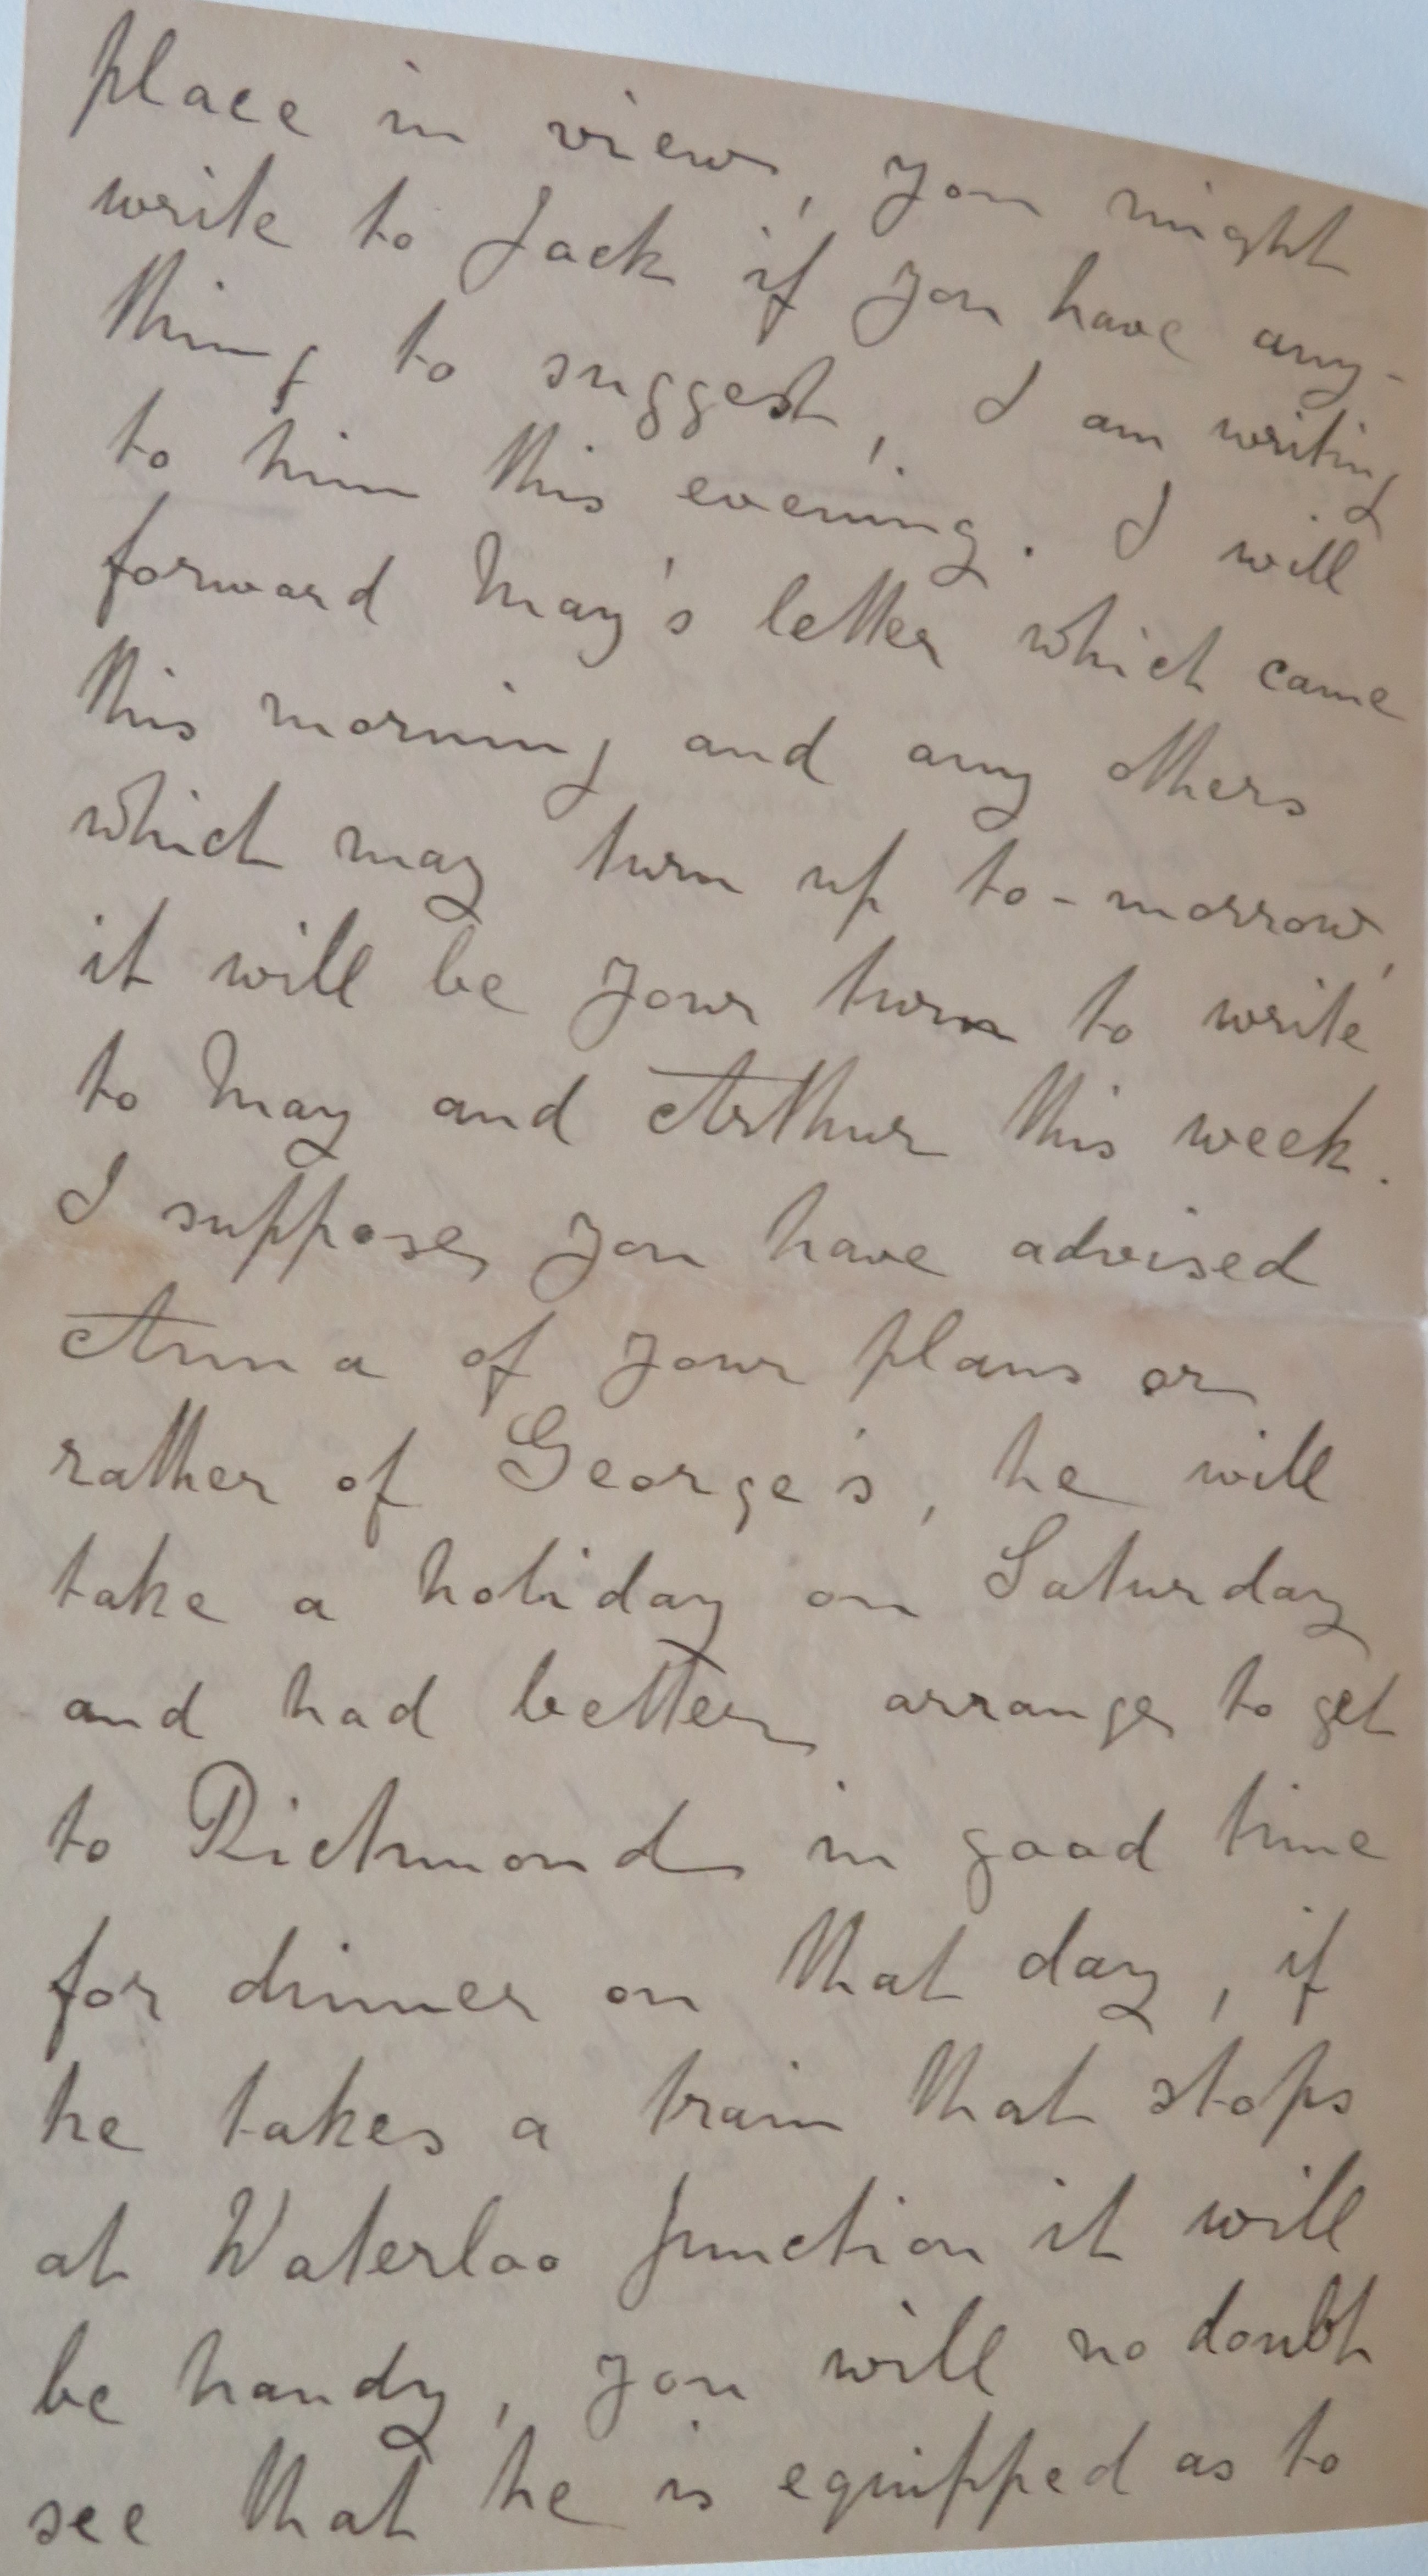 place in view, you might
write to Jack if you have any-
thing to suggest, I am writing
to him this evening. I will
forward May's letter which came
this morning and any others
which may turn up to-morrow,
it will be your turn to write
to May and Arthur this week.
I suppose you have advised
Anna of your plans or
rather of George's, he will
take a holiday on Saturday
and had better arrange to get
to Richmond in good time
for dinner on that day, if
he takes a train that stops
at Waterloo Junction it will
be handy, you will no doubt
see that he is equipped as to